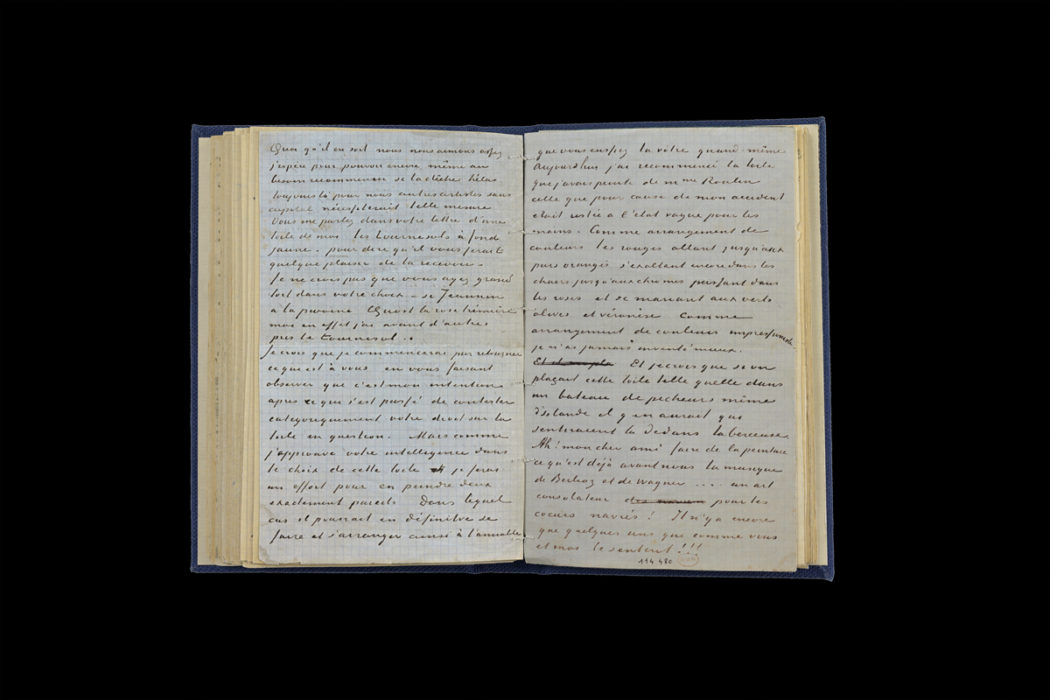 Quoi qu'il en soit nous nous aimons assez
j'espère pour pouvoir encore même au
besoin recommencer si la dèche hélas
toujours là pour nous autres artistes sans
capital nécessiterait telle mesure
Vous me parlez dans votre lettre d'une
toile de moi les tournesols à fond
jaune - pour dire qu'il vous ferait
quelque plaisir de la recevoir -
Je ne crois pas que vous ayez grand
tort dans votre choix - si Jeannin
a la pivoine Quost la rose trémière
moi en effet j'ai avant d'autres
pris le tournesol ..
Je crois que je commencerai par retourner
ce qui est à vous en vous faisant
observer que c'est mon intention
après ce qui s'est passé de contester
catégoriquement votre droit sur la
toile en question. Mais comme
j'approuve votre intelligence dans
le choix de cette toile je ferai
un effort pour en peindre deux
exactement pareils Dans lequel
cas il pourrait en définitive se
faire et s'arranger ainsi à l'amiable
que vous eussiez la vôtre quand même
Aujourd'hui j'ai recommencé la toile
que j'avais peinte de mme Roulin
celle que pour cause de mon accident
était restée à l'état vague pour les
mains - Comme arrangement de
couleurs les rouges allant jusqu'aux
purs orangés s'exaltent encore dans les
chairs jusqu'aux chromes passant dans
les roses et se mariant aux verts
olives et véronèse Comme
arrangement de couleurs impressionniste
je n'ai jamais inventé mieux.
Et Et je crois que si on
plaçait cette toile telle quelle dans
un bateau de pecheurs même
d'Islande il y en aurait qui
sentiraient là dedans la berceuse
Ah! mon cher ami faire de la peinture
ce qu'est déjà avant nous la musique
de Berlioz et de Wagner .... un art
consolateur pour les
coeurs navrés! Il n'y a encore
que quelques uns qui comme vous
et moi le sentent!!!
114 480